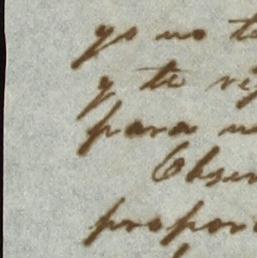 yo no te
y te rej
para un
Obser
propor